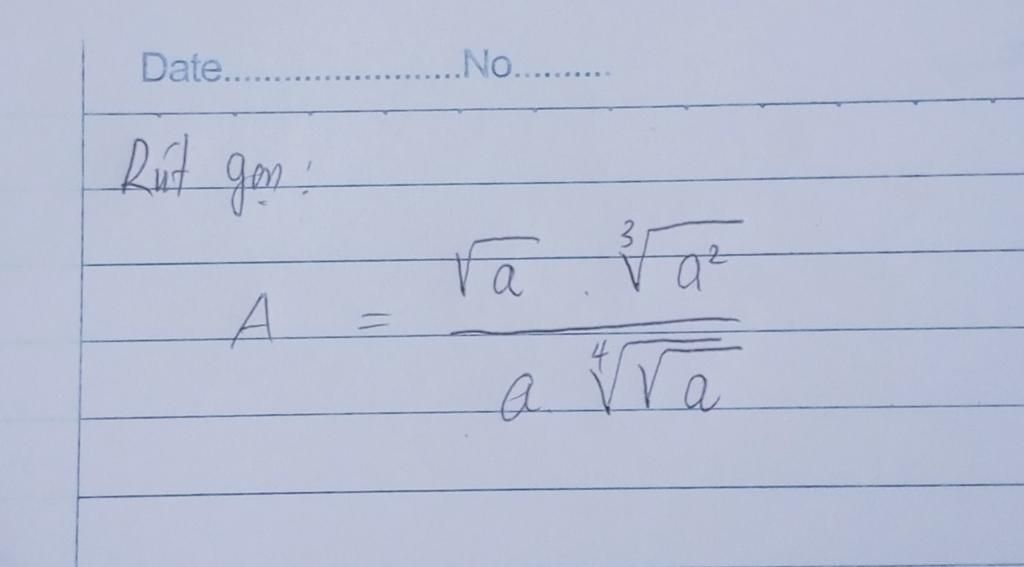 Date.......................No..........
Rút gọn:
A = \frac{\sqrt{a} . \sqrt[3]{a^2}}{a. \sqrt[4]{\sqrt{a}}}